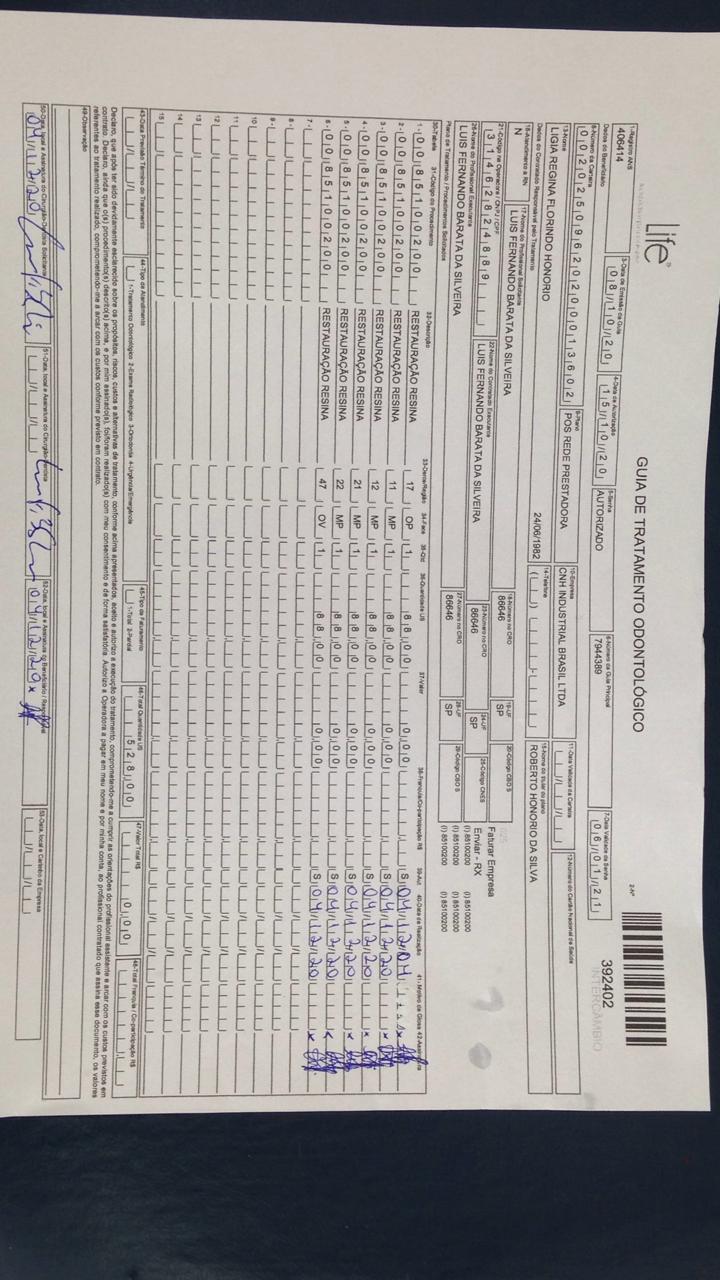 Life
GUIA DE TRATAMENTO ODONTOLÓGICO
2-Nº
392402
INTERCAMBIO
1-Registro ANS
406414
3-Data de Emissão da Guia
08/10/20
4-Data de Autorização
15/10/20
5-Senha
AUTORIZADO
6-Número da Guia Principal
7944389
7-Data Validade da Senha
06/01/21
Dados do Beneficiário
8-Número da Carteira
00202509620200013602
9-Plano
POS REDE PRESTADORA
10-Empresa
CNH INDUSTRIAL BRASIL LTDA
11-Data Validade da Carteira
12-Número do Cartão Nacional de Saúde
13-Nome
LIGIA REGINA FLORINDO HONORIO
24/06/1982
14-Telefone
15-Nome do titular do plano
ROBERTO HONORIO DA SILVA
Dados do Contratado Responsável pelo Tratamento
16-Atendimento a RN
N
17-Nome do Profissional Solicitante
LUIS FERNANDO BARATA DA SILVEIRA
18-Número no CRO
86646
19-UF
SP
20-Código CBO S
Faturar Empresa
Enviar - RX
21-Código na Operadora / CNPJ / CPF
31462824889
22-Nome do Contratado Executante
LUIS FERNANDO BARATA DA SILVEIRA
23-Número no CRO
86646
24-UF
SP
25-Código CNES
(I) 85100200 (I) 85100200
(I) 85100200 (I) 85100200
(I) 85100200 (I) 85100200
26-Nome do Profissional Executante
LUIS FERNANDO BARATA DA SILVEIRA
27-Número no CRO
86646
28-UF
SP
29-Código CBO S
Plano de Tratamento / Procedimentos Solicitados
30-Tabela 31-Código do Procedimento 32-Descrição 33-Dente/Região 34-Face 35-Qtd 36-Quantidade US 37-Valor 38-Franquia/Co-participação R$ 39-Aut 40-Data de Realização 41-Motivo da Glosa 42-Assinatura
1- 00 85100200 RESTAURAÇÃO RESINA 17 OP 1 88,00 0,00 S 04/12/04
2- 00 85100200 RESTAURAÇÃO RESINA 11 MP 1 88,00 0,00 S 04/12/20
3- 00 85100200 RESTAURAÇÃO RESINA 12 MP 1 88,00 0,00 S 04/12/20
4- 00 85100200 RESTAURAÇÃO RESINA 21 MP 1 88,00 0,00 S 04/12/20
5- 00 85100200 RESTAURAÇÃO RESINA 22 MP 1 88,00 0,00 S 04/12/20
6- 00 85100200 RESTAURAÇÃO RESINA 47 OV 1 88,00 0,00 S 04/12/20
7-
8-
9-
10
11
12
13
14
15
43-Data Previsão Término do Tratamento
44-Tipo de Atendimento
1-Tratamento Odontológico 2-Exame Radiológico 3-Ortodontia 4-Urgência/Emergência
45-Tipo de Faturamento
1-Total 2-Parcial
46-Total Quantidade US
528,00
47-Valor Total R$
0,00
48-Total Franquia / Co-participação R$
Declaro, que após ter sido devidamente esclarecido sobre os propósitos, riscos, custos e alternativas de tratamento, conforme acima apresentados, aceito e autorizo a execução do tratamento, comprometendo-me a cumprir as orientações do profissional assistente e arcar com os custos previstos em
contrato. Declaro, ainda que o(s) procedimento(s) descrito(s) acima, e por mim assinado(s), foi/foram realizado(s) com meu consentimento e de forma satisfatória. Autorizo a Operadora a pagar em meu nome e por minha conta, ao profissional contratado que assina esse documento, os valores
referentes ao tratamento realizado, comprometendo-me a arcar com os custos conforme previsto em contrato.
49-Observação
50-Data, local e Assinatura do Cirurgião-Dentista Solicitante
04/12/20
51-Data, local e Assinatura do Cirurgião-Dentista
52-Data, local e Assinatura do Beneficiário / Responsável
04/12/20
53-Data, local e Carimbo da Empresa